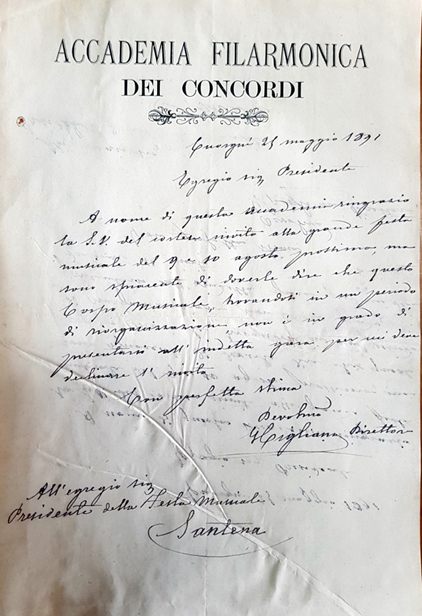 ACCADEMIA FILARMONICA
DEI CONCORDI
Cuorgnè 25 maggio 1891
Egregio sig Presidente
A nome di questa Accademia ringrazio
la S. V. del cortese invito alla grande festa
musicale del 9 e 10 agosto prossimo, ma
sono spiacente di doverle dire che questo
Corpo Musicale, trovandosi in un periodo
di riorganizzazione, non è in grado di
presentarsi all'indetta gara per cui deve
declinare l'invito
Con perfetta stima
Devotmo
G Cigliana Direttore
All'egregio sig
Presidente della Festa Musicale
Santena